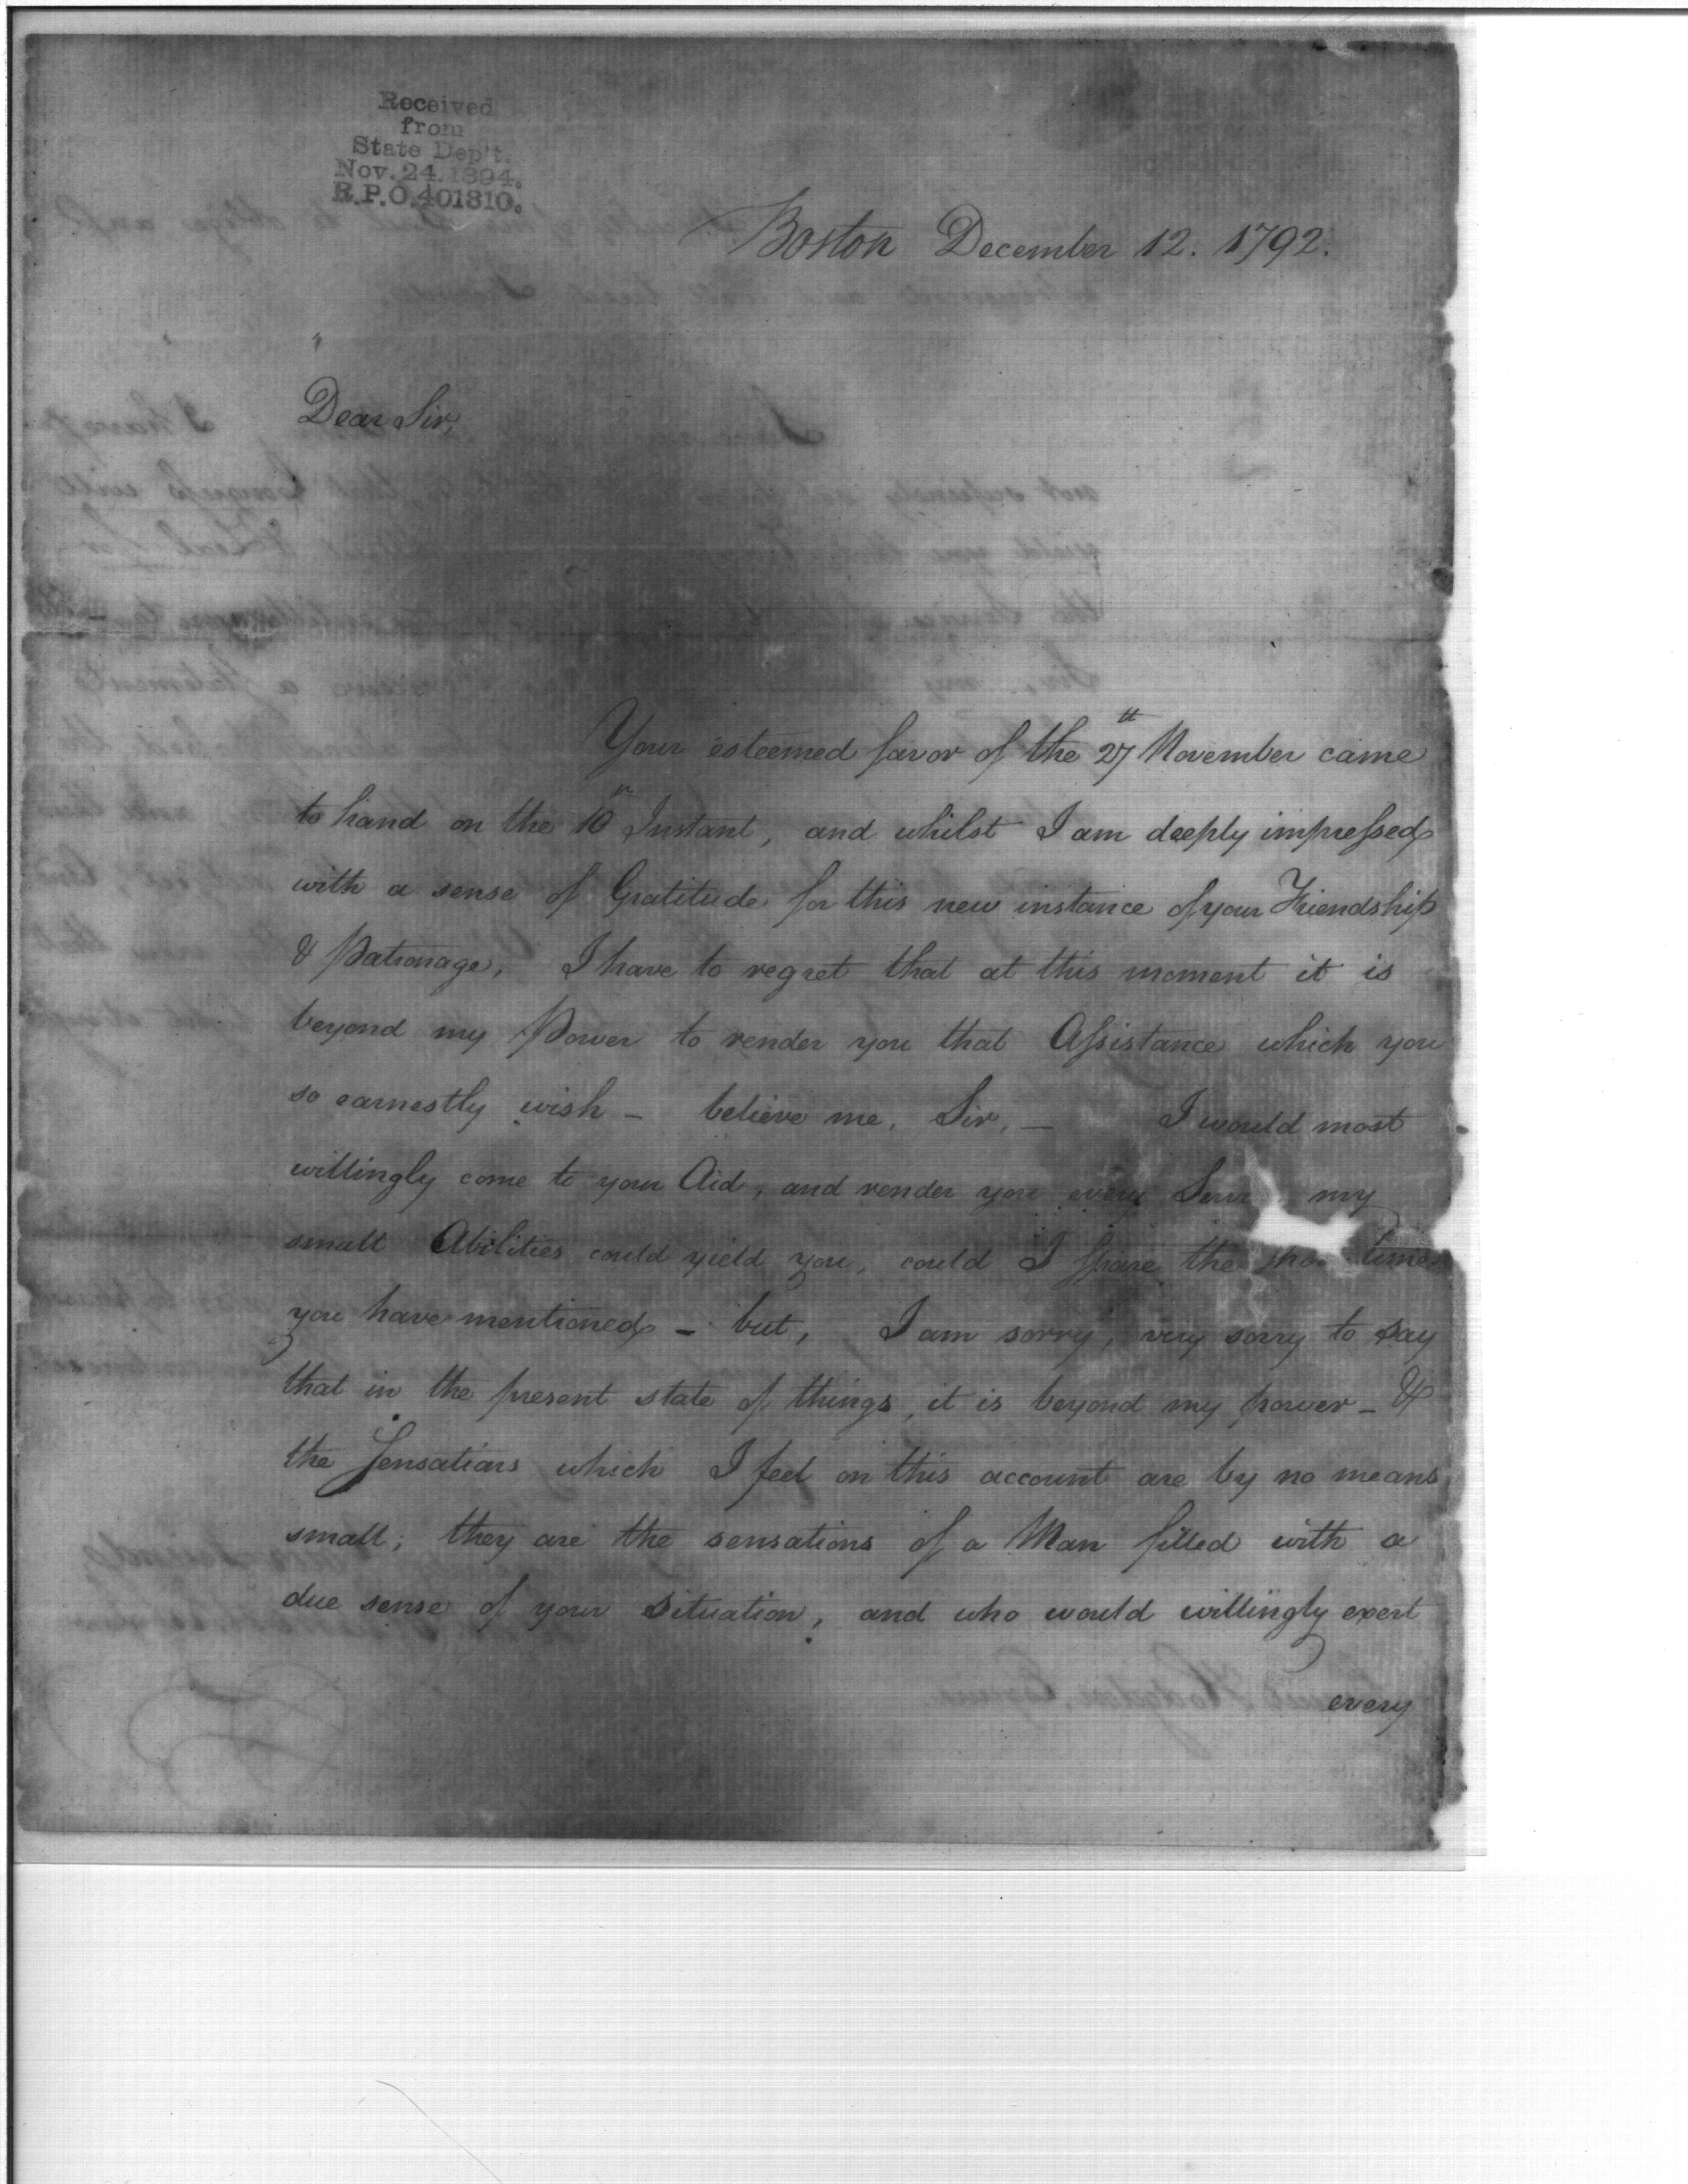 Received
from
State Dep't.
Nov. 24. 1894.
R.P.O. 401810.
Boston December 12. 1792.
Dear Sir,
Your esteemed favor of the 27th November came
to hand on the 10th Instant, and whilst I am deeply impressed
with a sense of Gratitude for this new instance of your Friendship
& Patronage, I have to regret that at this moment it is
beyond my Power to render you that Assistance which you
so earnestly wish – believe me, Sir, – I would most
willingly come to your Aid, and render you every my
small Abilities could yield you, could I spare the time
you have mentioned – but, I am sorry, very sorry to say
that in the present state of things, it is beyond my power – &
the Sensations which I feel on this account are by no means
small; they are the sensations of a Man filled with a
due sense of your situation, and who would willingly exert
every